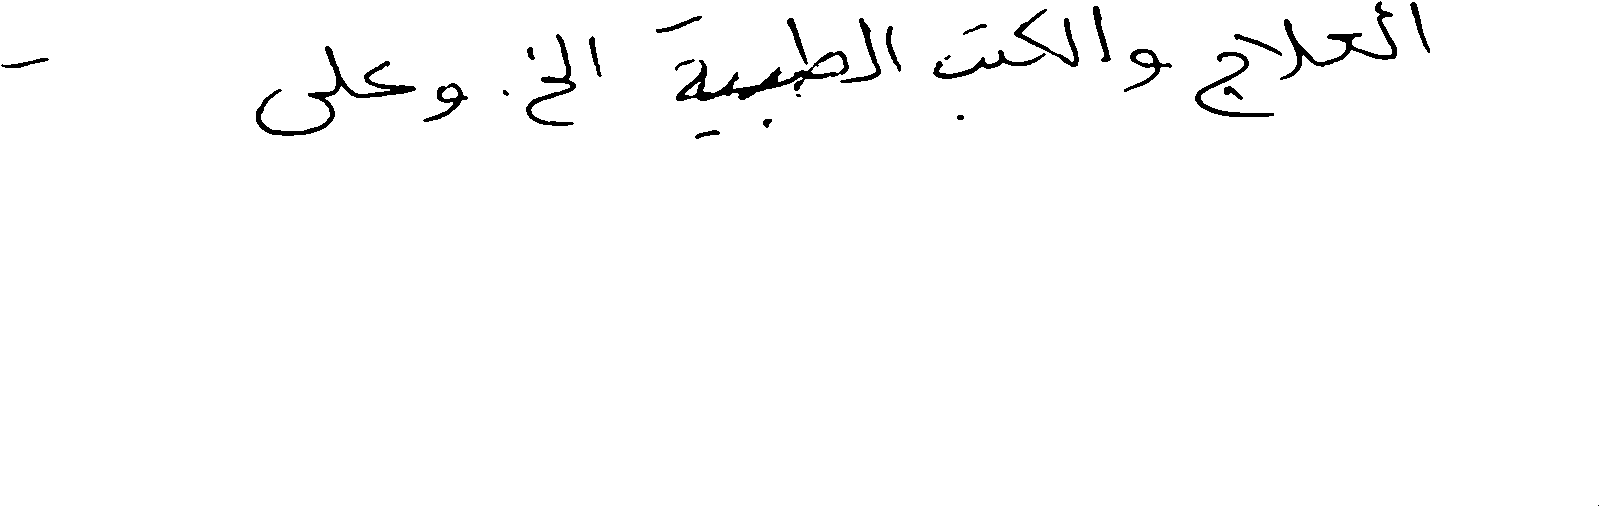 العلاج والكتب الطبية الخ. وعلى